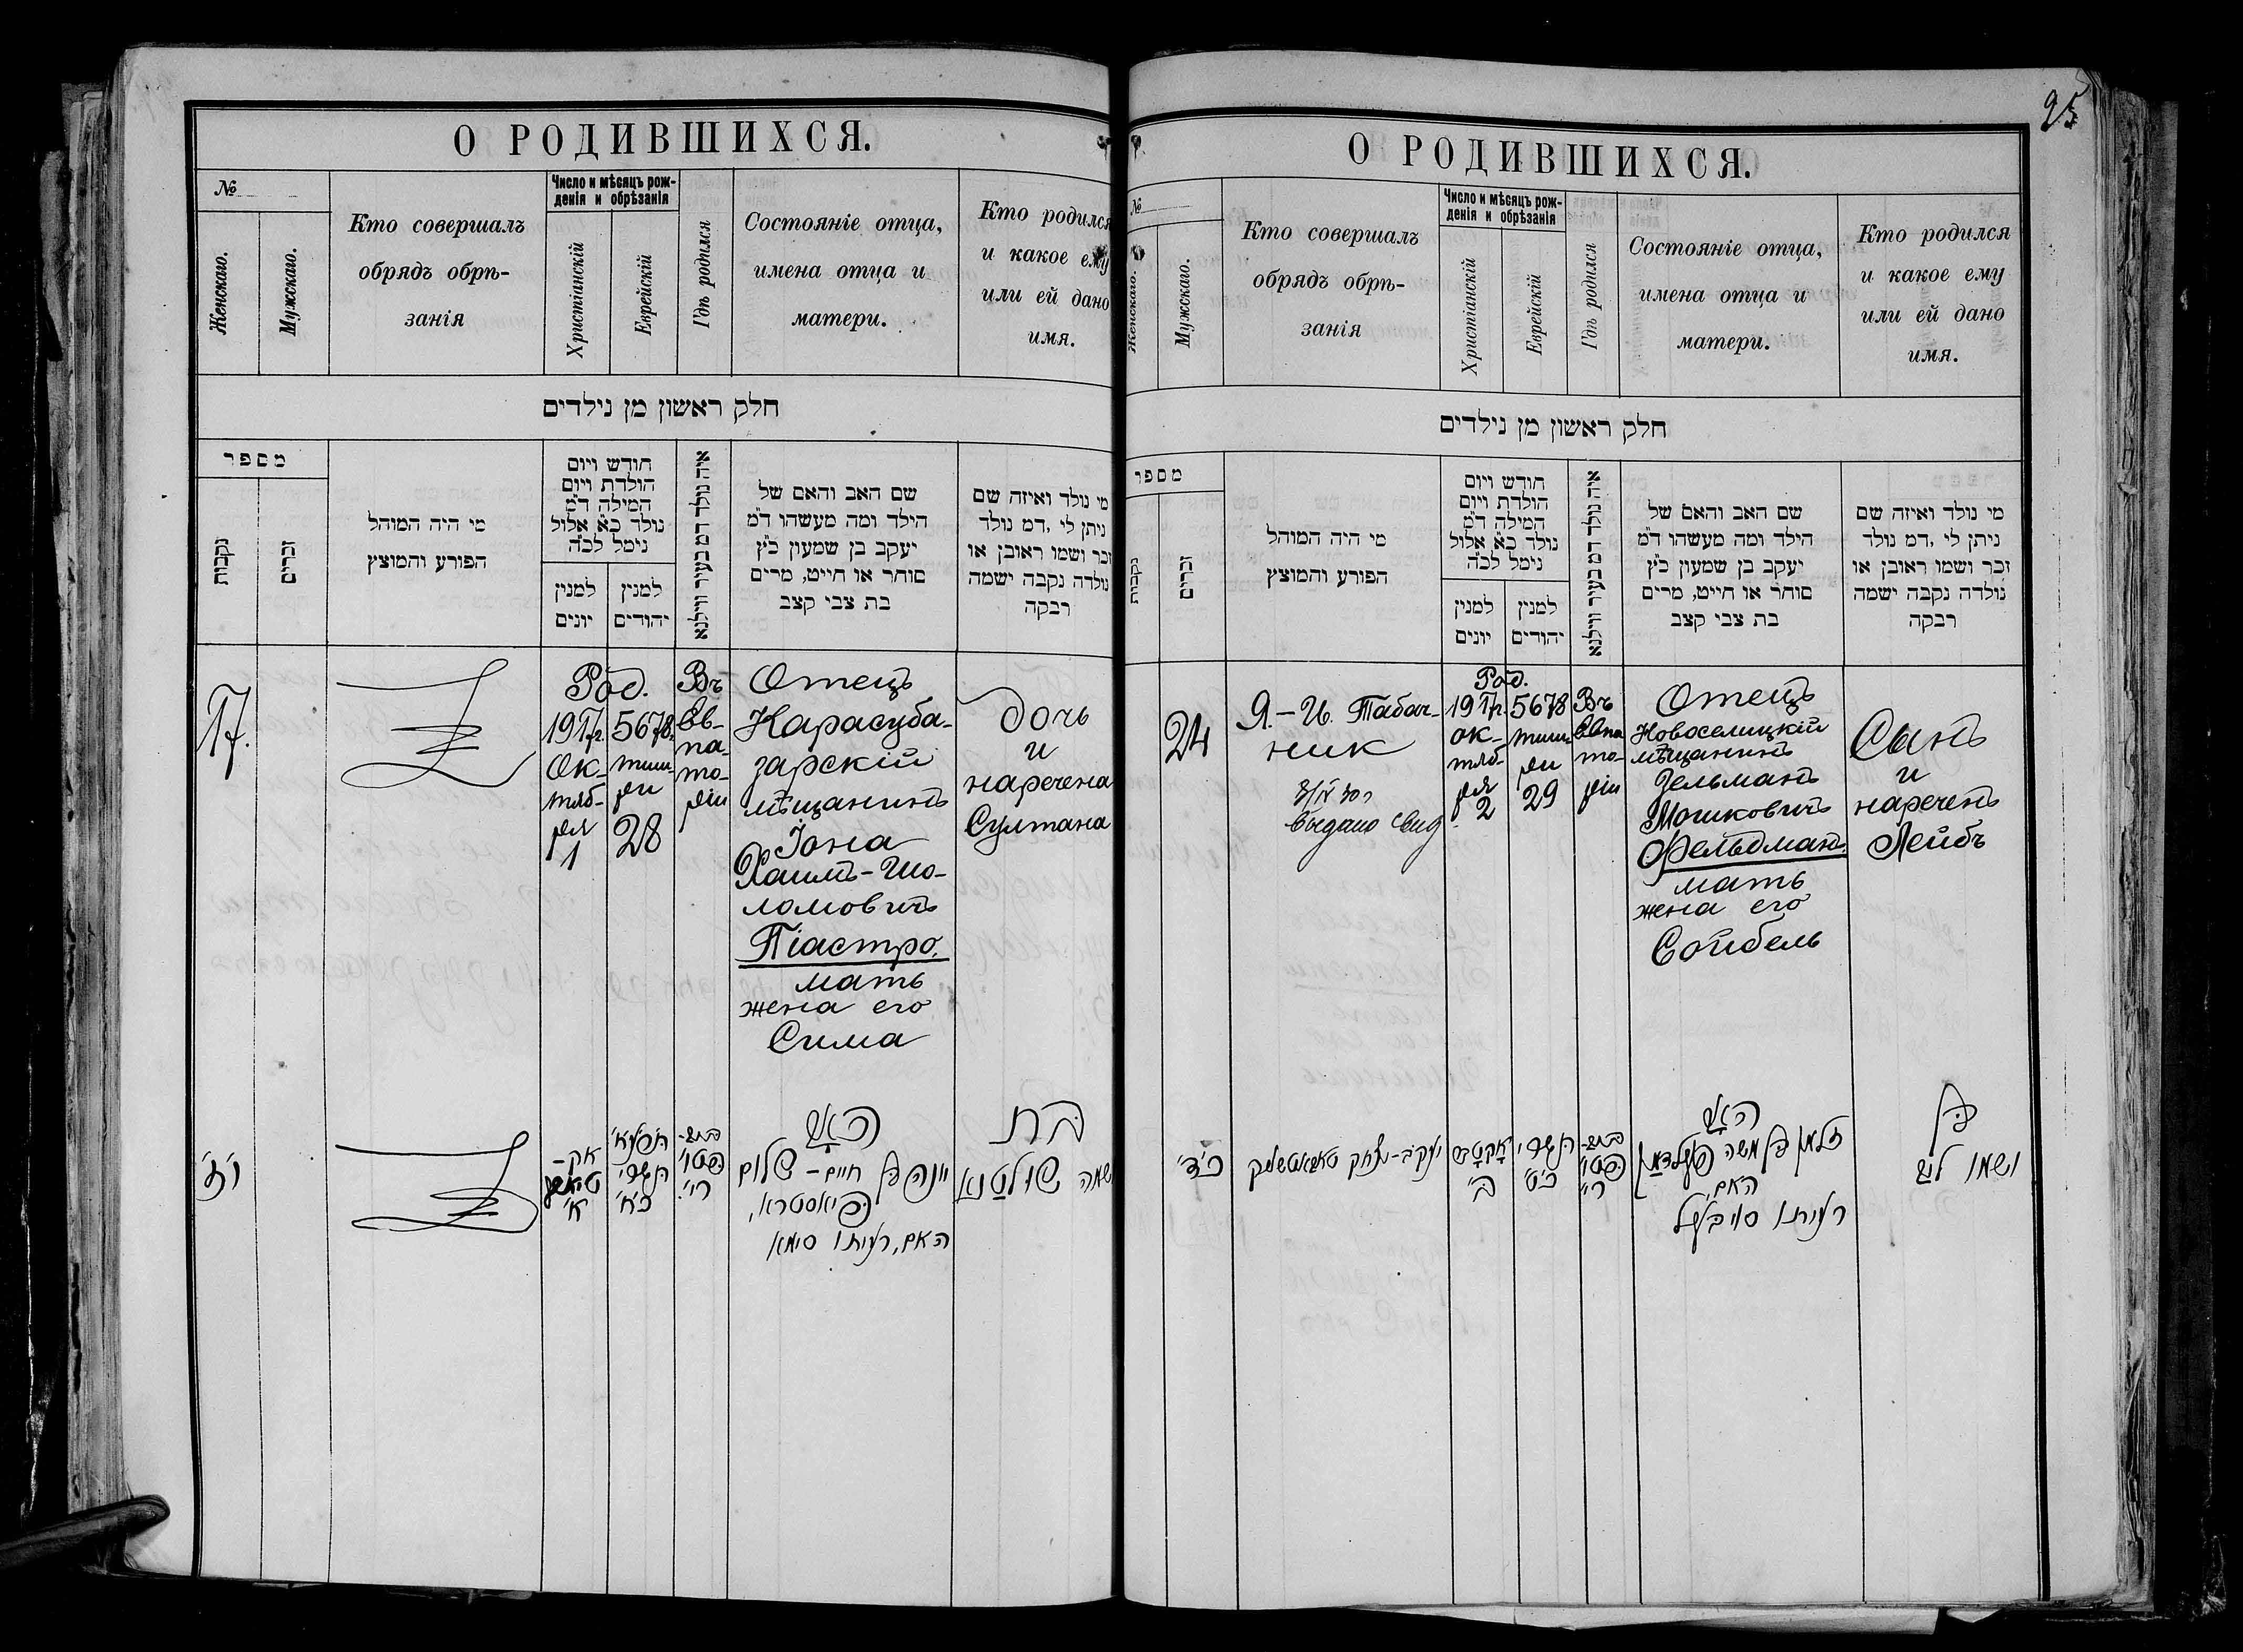 25
О РОДИВШИХСЯ.
№
Женскаго.
Мужскаго.
Кто совершалъ
обрядъ обрѣ-
занія
Число и мѣсяцъ рож-
денія и обрѣзанія
Христіанскій
Еврейскій
Гдѣ родился
Состояніе отца,
имена отца и
матери.
Кто родился
и какое ему
или ей дано
имя.
חלק ראשון מן נילדים
מספר
נקבות
זכרים
מי היה המוהל
הפורע והמוצץ
חודש ויום
הולדת ויום
המילה ד"מ
נולד כ"א אלול
נימל לכ"ה
למנין
יונים
למנין
יהודים
איה נולד דמ בעיר ווילנא
שם האב והאם של
הילד ומה מעשהו ד"מ
יעקב בן שמעון כ"ץ
סוחר או חייט, מרים
בת צבי קצב
מי נולד ואיזה שם
ניתן לי ,דמ נולד
זכר ושמו ראובן או
נולדה נקבה ישמה
רבקה
17.
Род.
1917г.
Ок-
тяб-
ря
1
5678
тиш-
ри
28
Въ
Ев-
па-
то-
ріи
Отецъ
Карасуба-
зарскій
мѣщанинъ
Іона
Хаимъ-Шо-
ломовичъ
Піастро,
мать
жена его
Сима
дочь
и
наречена
Султана
תשרי
כ״ח
האב
יונה בן חיים - שלום
פיאסטרא,
האם, רעיתו סימא
בת
שמה שולטנא
О РОДИВШИХСЯ.
№
Женскаго.
Мужскаго.
Кто совершалъ
обрядъ обрѣ-
занія
Число и мѣсяцъ рож-
денія и обрѣзанія
Христіанскій
Еврейскій
Гдѣ родился
Состояніе отца,
имена отца и
матери.
Кто родился
и какое ему
или ей дано
имя.
חלק ראשון מן נילדים
מספר
נקבות
זכרים
מי היה המוהל
הפורע והמוצץ
חודש ויום
הולדת ויום
המילה ד"מ
נולד כ"א אלול
נימל לכ"ה
למנין
יונים
למנין
יהודים
איה נולד דמ בעיר ווילנא
שם האב והאם של
הילד ומה מעשהו ד"מ
יעקב בן שמעון כ"ץ
סוחר או חייט, מרים
בת צבי קצב
מי נולד ואיזה שם
ניתן לי ,דמ נולד
זכר ושמו ראובן או
נולדה נקבה ישמה
רבקה
24
Я.-И. Табач-
ник
3/IV 30 г
выдано свид
Род.
1917г.
ок-
тяб-
ря
2
5678
тиш-
ри
29
Въ
Евпа
то-
ріи
Отецъ
Новоселицкій
мѣщанинъ
Зельманъ
Мошковичъ
Фельдман.
мать
жена его
Сойбель
Сынъ
и
нареченъ
Лейбъ
כ״ד
יעקב-יצחק טאבאטשניק
ב׳
תשרי
כ״ט
האב
זלמן בן משה פעלדמן
האם,
רעיתו סויבעל
בן
ושמו ליב